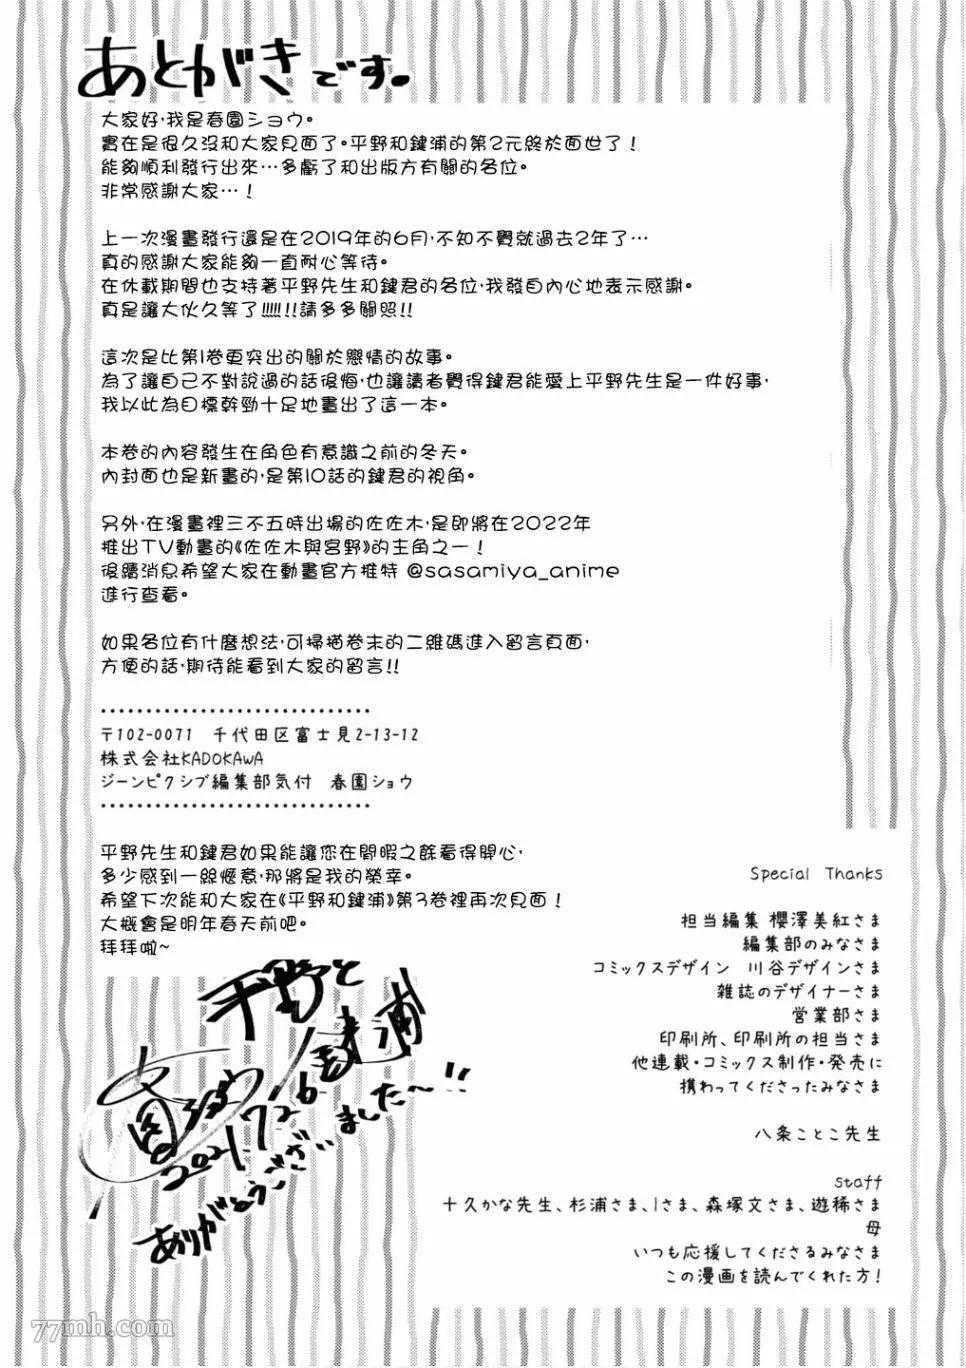 あとがきです。
大家好,我是春園ショウ。
實在是很久沒和大家見面了。平野和鍵浦的第2元終於面世了！
能夠順利發行出來…多虧了和出版方有關的各位。
非常感謝大家…！
上一次漫畫發行還是在2019年的6月,不知不覺就過去2年了…
真的感謝大家能夠一直耐心等待。
在休載期間也支持著平野先生和鍵君的各位,我發自內心地表示感謝。
真是讓大伙久等了!!!!!!請多多關照!!
這次是比第1卷更突出的關於戀情的故事。
為了讓自己不對說過的話後悔,也讓讀者覺得鍵君能愛上平野先生是一件好事,
我以此為目標幹勁十足地畫出了這一本。
本卷的內容發生在角色有意識之前的冬天。
內封面也是新畫的,是第10話的鍵君的視角。
另外,在漫畫裡三不五時出場的佐佐木,是即將在2022年
推出TV動畫的《佐佐木與宮野》的主角之一！
後續消息希望大家在動畫官方推特 @sasamiya_anime
進行查看。
如果各位有什麼想法,可掃描卷末的二維碼進入留言頁面,
方便的話,期待能看到大家的留言!!
〒102-0071　千代田区富士見2-13-12
株式会社KADOKAWA
ジーンピクシブ編集部気付　春園ショウ
平野先生和鍵君如果能讓您在閒暇之餘看得開心,
多少感到一絲愜意,那將是我的榮幸。
希望下次能和大家在《平野和鍵浦》第3卷裡再次見面！
大概會是明年春天前吧。
拜拜啦~
平野と
鍵浦
春園ショウ
2021.7.26
ありがとうございました〜!!
Special Thanks
担当編集 櫻澤美紅さま
編集部のみなさま
コミックスデザイン　川谷デザインさま
雑誌のデザイナーさま
営業部さま
印刷所、印刷所の担当さま
他連載・コミックス制作・発売に
携わってくださったみなさま
八条ことこ先生
staff
十久かな先生、杉浦さま、Iさま、森塚文さま、遊稀さま
母
いつも応援してくださるみなさま
この漫画を読んでくれた方！
77mh.com